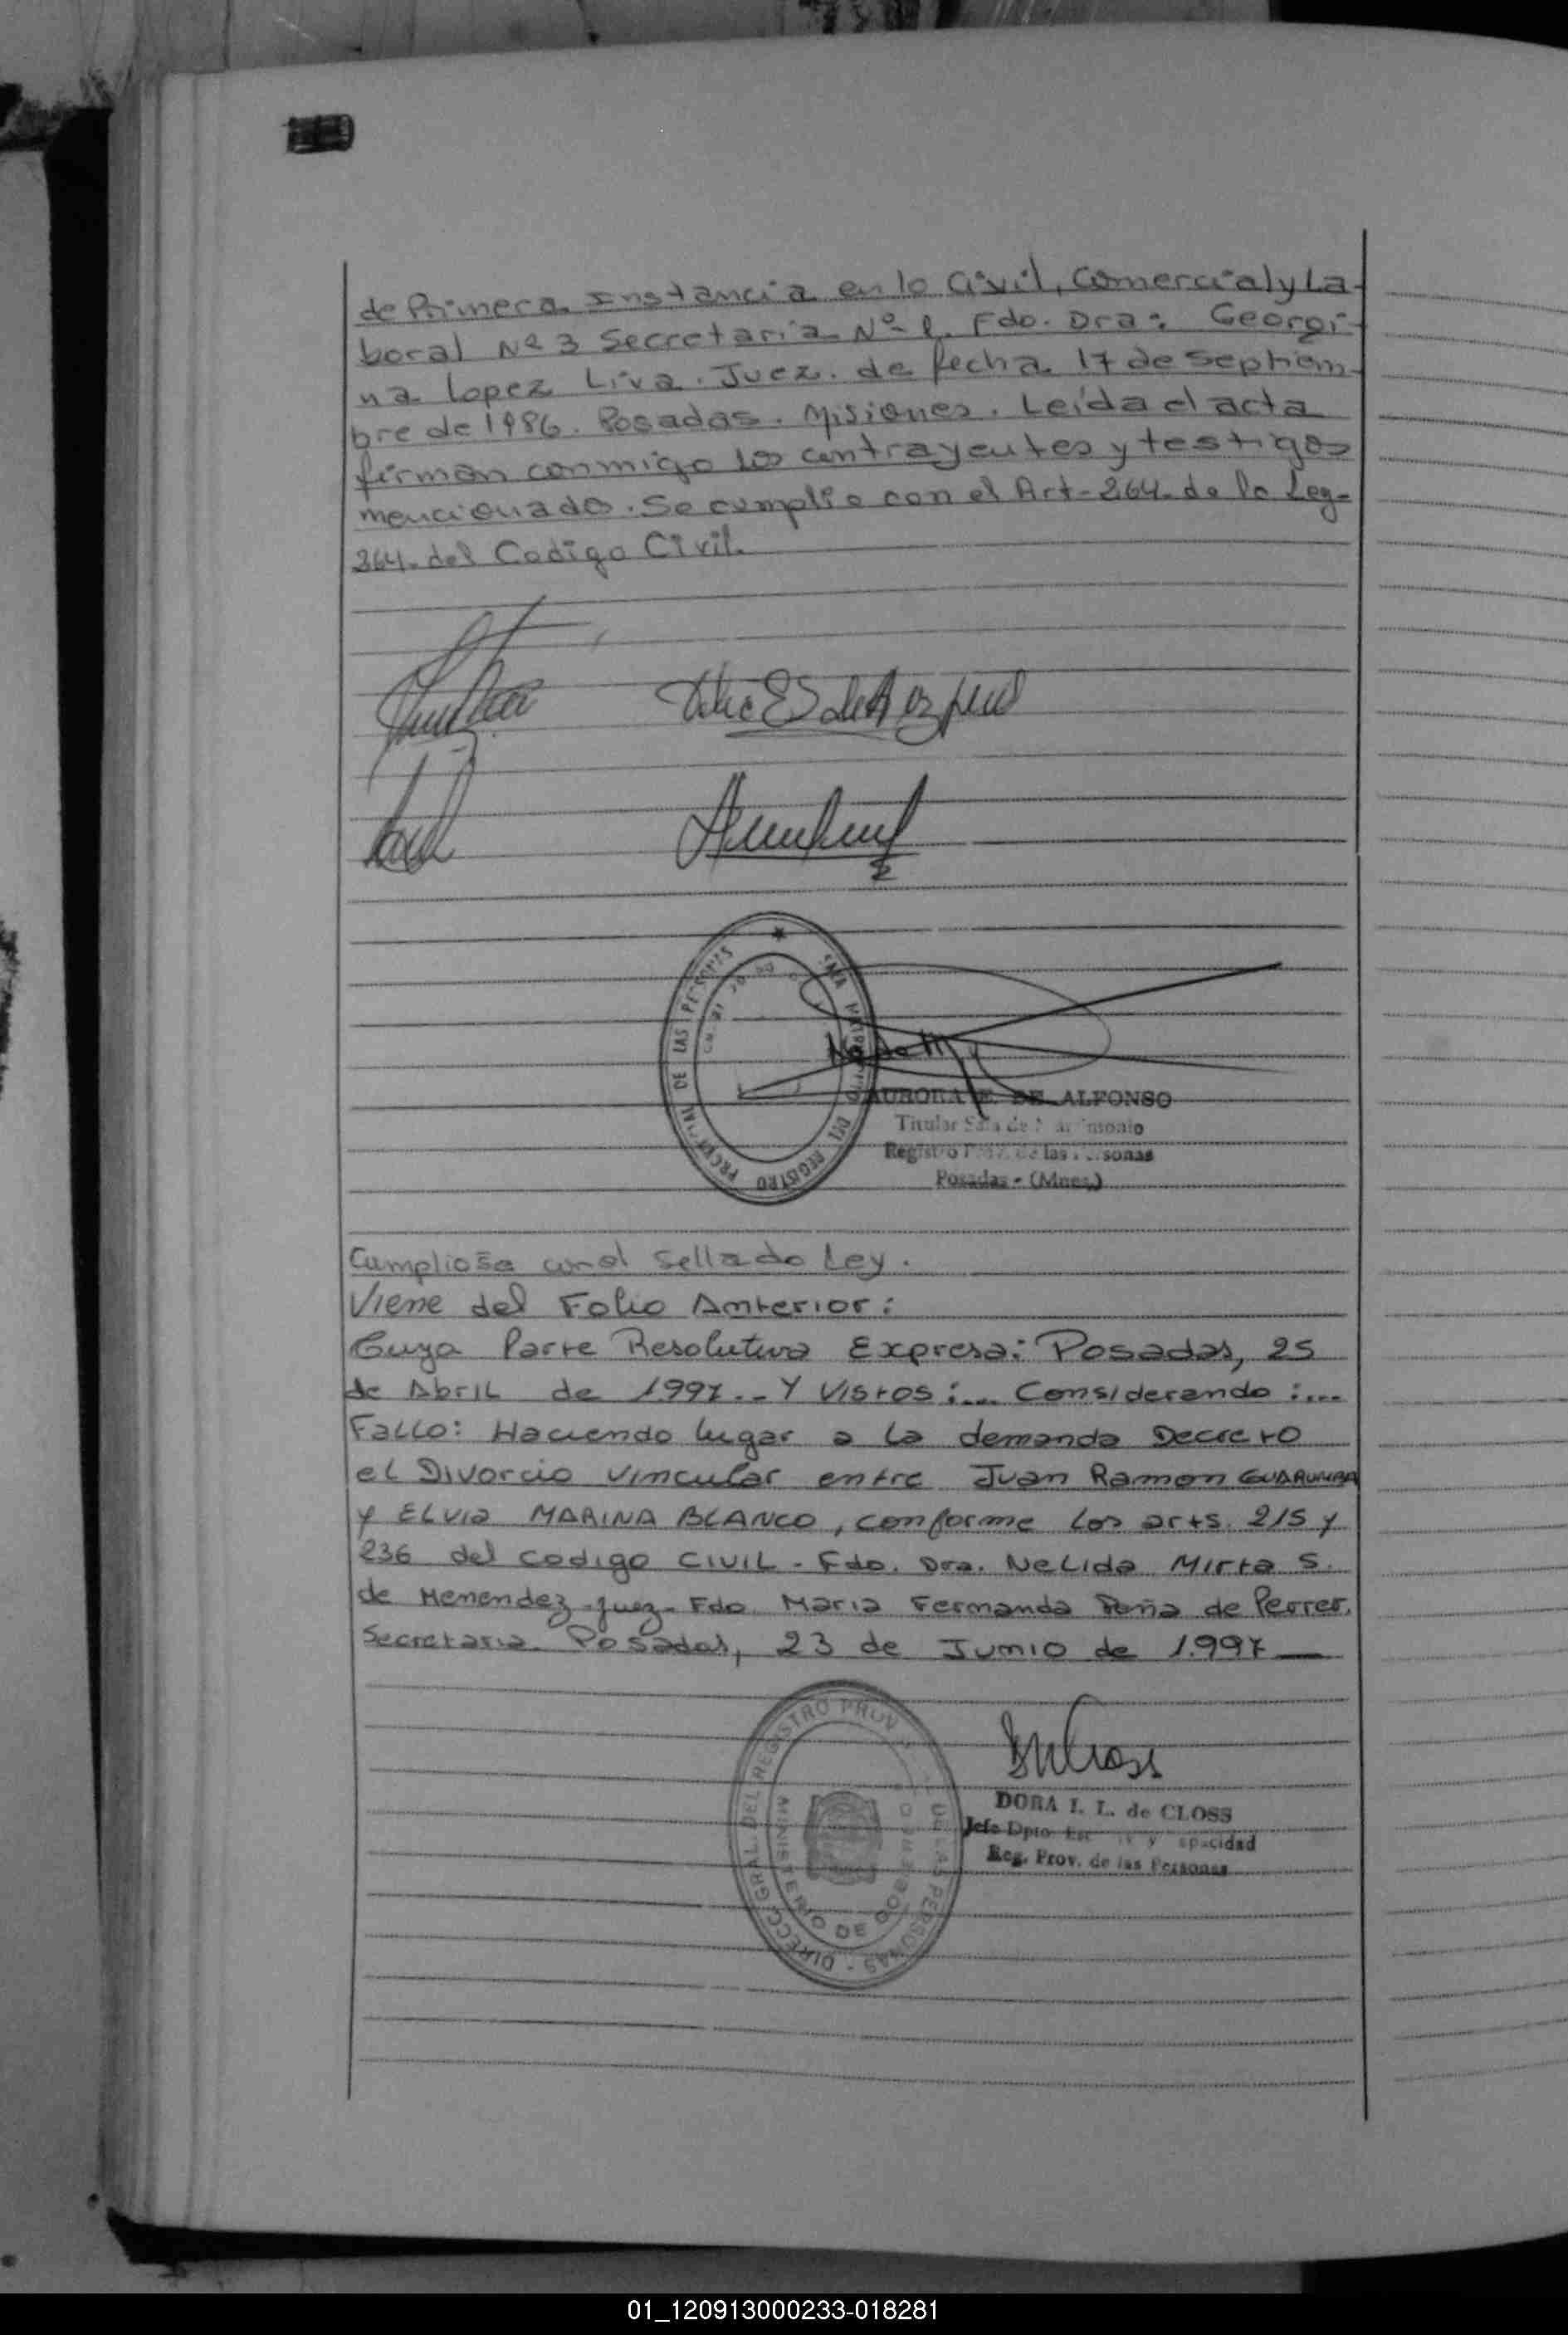 de Primera Instancia en lo Civil, Comercial y La-
boral Nº 3 Secretaria Nº 1. Fdo. Dra: Georgi-
na Lopez Liva. Juez. de fecha 17 de Septiem-
bre de 1986. Posadas. Misiones. Leída el acta
firman conmigo los contrayentes y testigos
mencionado. Se cumplio con el Art-264. de la Ley-
264. del Codigo Civil.
SALA MATRIMONIO DEL REGISTRO PROVINCIAL DE LAS PERSONAS
AURORA E. DE ALFONSO
Titular Sala de Matrimonio
Registro Prov. de las Personas
Posadas - (Mnes.)
Cumpliose con el sellado Ley.
Viene del Folio Anterior:
Cuya Parte Resolutiva Expresa: Posadas, 25
de Abril de 1997.- Y Vistos:... Considerando:....
Fallo: Haciendo lugar a la demanda Decreto
el Divorcio Vincular entre Juan Ramon GUARUMBA
y ELVIA MARINA BLANCO, conforme los arts. 215 y
236 del codigo CIVIL - Fdo. Dra. Nelida Mirta S.
de Menendez - Juez - Fdo Maria Fernanda de Ferrer.
Secretaria. Posadas, 23 de Junio de 1.997
DIRECC. GRAL. DEL REGISTRO PROV. DE LAS PERSONAS -
MINISTERIO DE GOBIERNO
DORA I. L. de CLOSS
Jefe Dpto y Capacidad
Reg. Prov. de las Personas
01_120913000233-018281